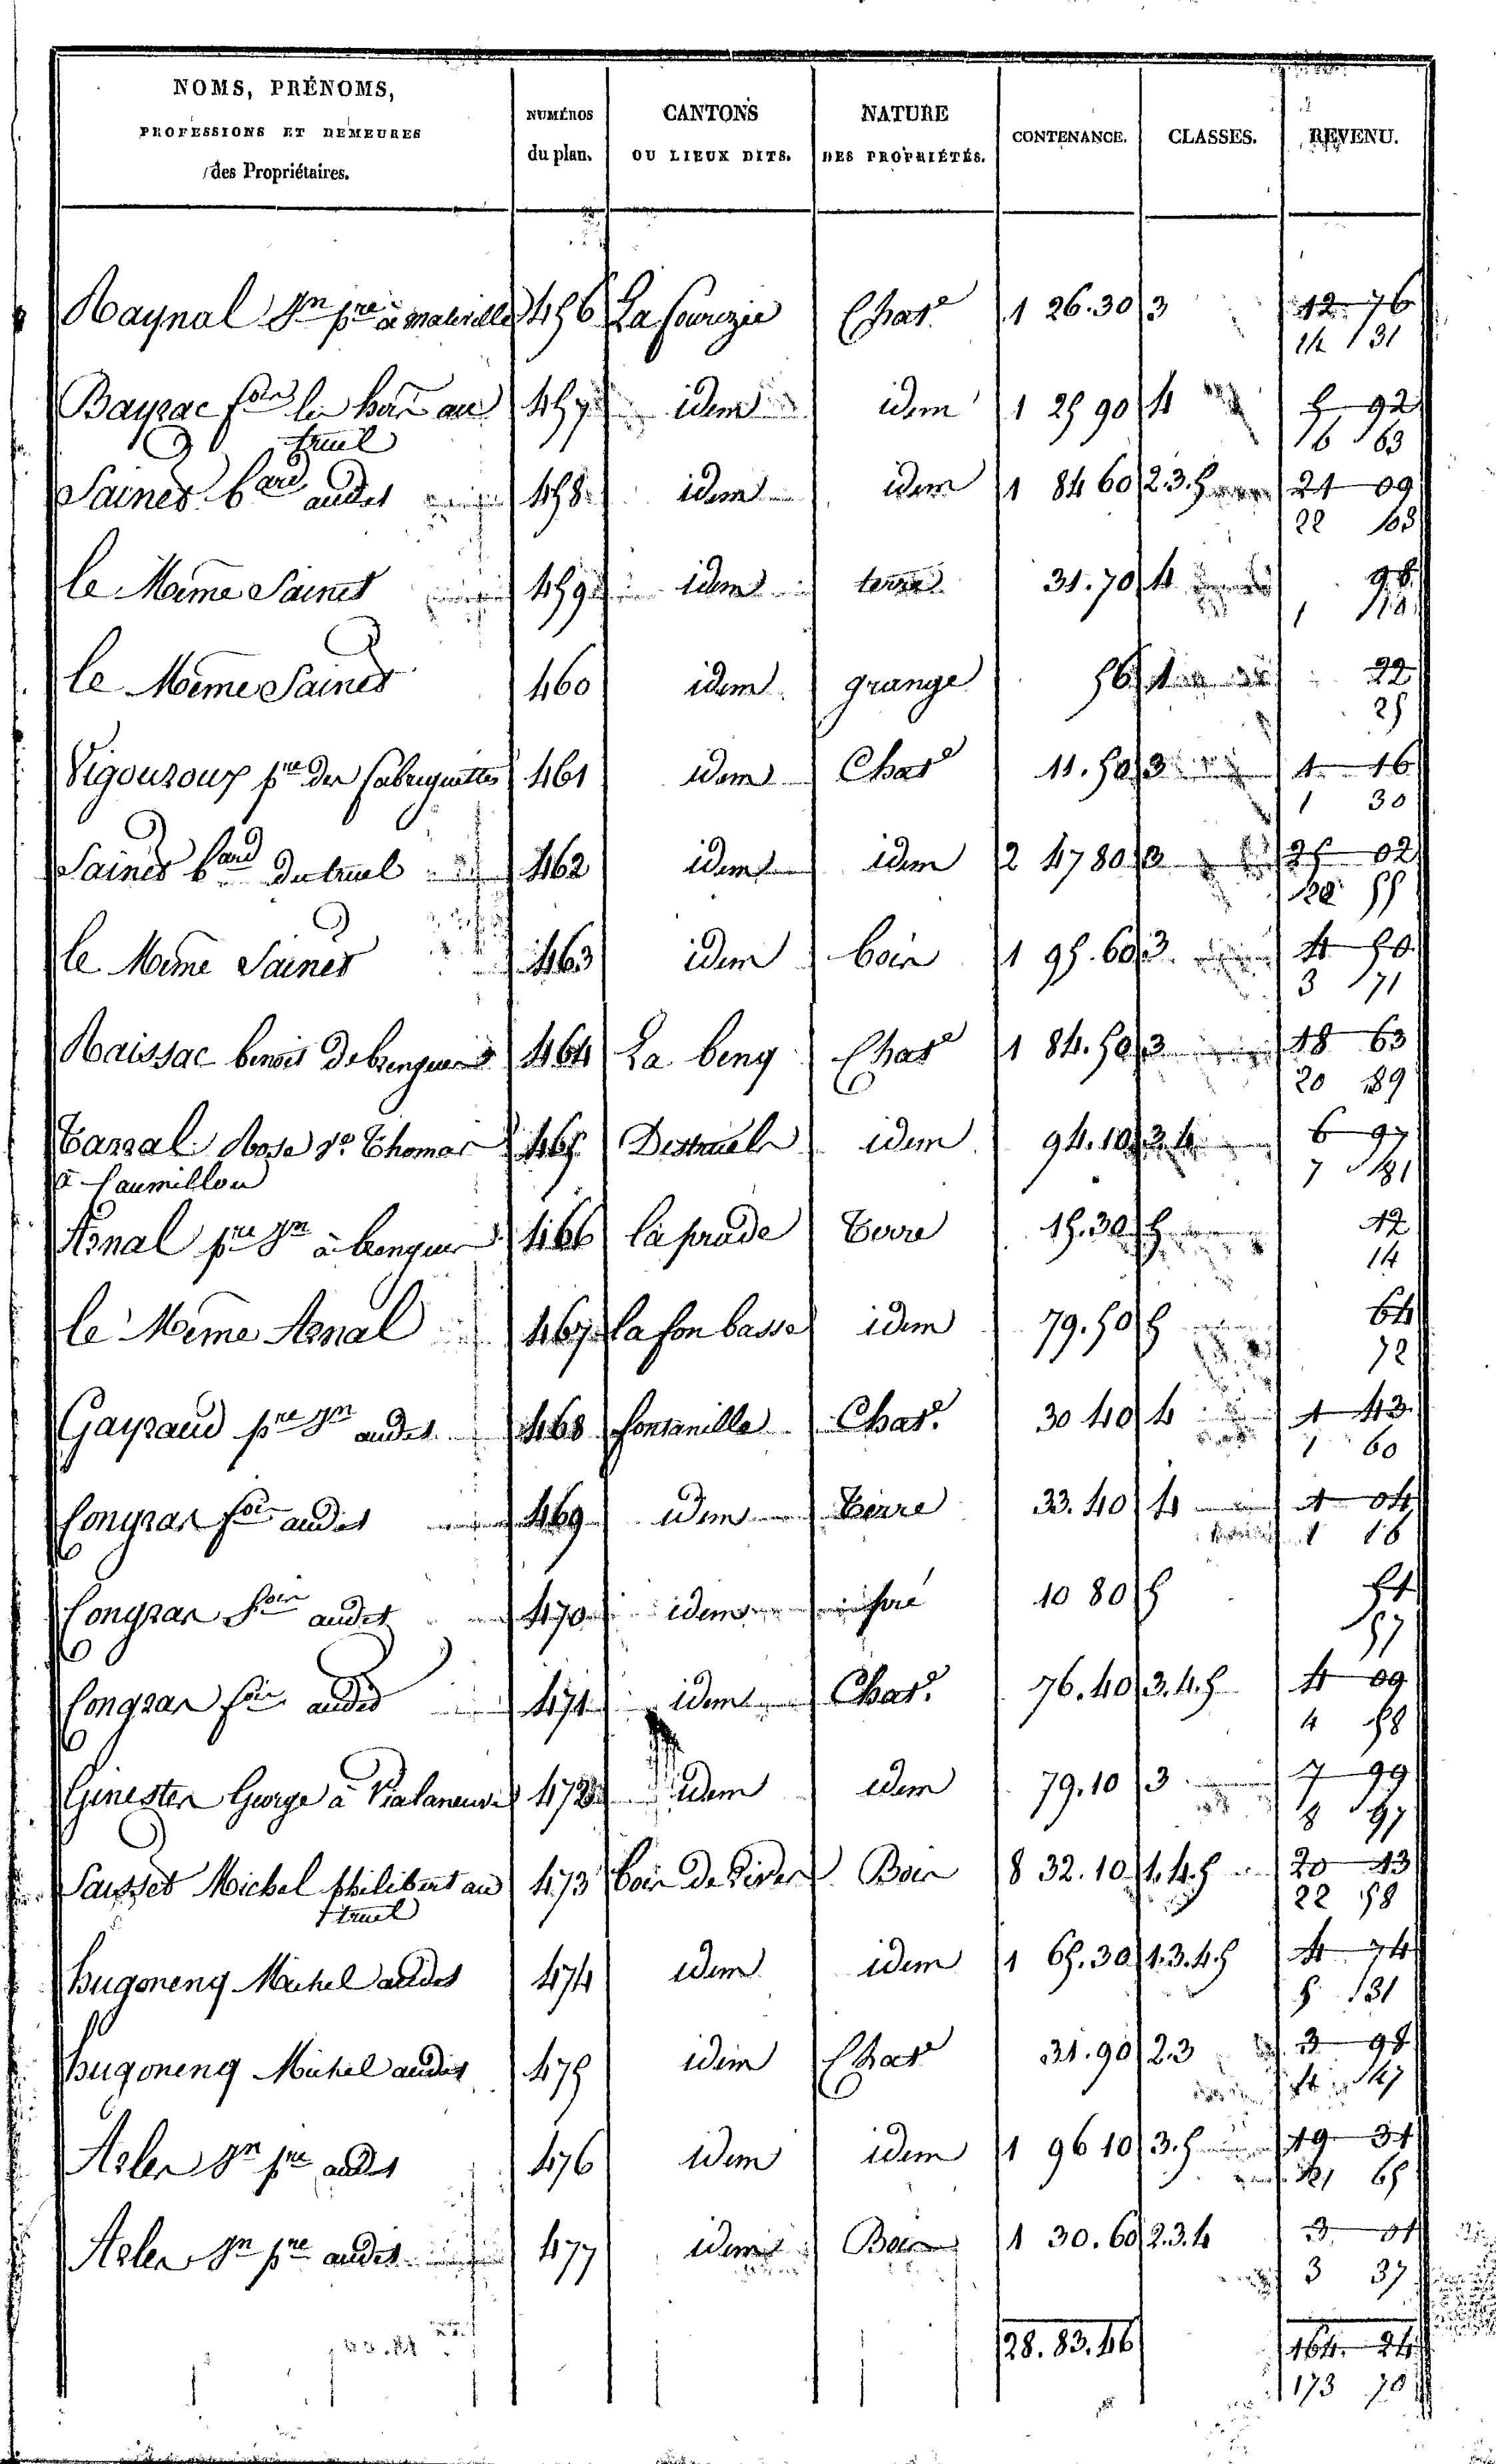 NOMS, PRÉNOMS, PROFESSIONS ET DEMEURES des Propriétaires. NUMÉROS du plan. CANTONS OU LIEUX DITS. NATURE DES PROPRIÉTÉS. CONTENANCE. CLASSES. REVENU.
Raynal Jn pre à 456 La Chat 1 26.30 3 12 76
14 31
Bayrac au 457 idem idem 1 25 90 4 5 92
truel 6 63
Sainés bard audit 458 idem idem 1 84 60 2.3.5 21 09
22
le Meme Sainés 459 idem terre 31.70 4 98
1
le Meme Sainés 460 idem grange 56 22
25
Vigouroux pre des fabreguettes 461 idem Chat 11.50 3 1 16
1 30
Sainés bard du truel 462 idem idem 2 47 80 25 02
55
le Meme Sainés 463 idem bois 1 95.60 3 4 50
3 71
Raissac benoit 464 La beng Chat 1 84.50 3 18 63
20 89
Cazzal Rose Ve Thomas 465 idem 94.10 3.4 6 97
à 7 81
Arnal pre Jn à 466 la prade Terre 15.30 5 12
14
le Meme Arnal 467 la fon basse idem 79.50 5 64
72
Gayraud pre Jn audit 468 fontanille Chat. 30 40 4 1 43
1 60
audit 469 idem Terre 33.40 4 1 04
1 16
audit 470 idem pré 10 80 5 51
57
audit 471 idem Chat. 76.40 3.4.5 4 09
4 58
Ginestes George à Vialaneuve 472 idem idem 79.10 3 7 99
8 97
Sausset Michel philibert au 473 bois de Bois 8 32.10 1.4.5 20 13
truel 22 58
hugoneng Michel audit 474 idem idem 1 65.30 1.3.4.5 4 74
5 31
hugoneng Michel audit 475 idem Chat 31.90 2.3 3 98
4 47
Jn pre audit 476 idem idem 1 96 10 3.5 19 31
21 65
Jn pre audit 477 idem Bois 1 30.60 2.3.4 3 01
3 37
28.83.46 164 24
173 70